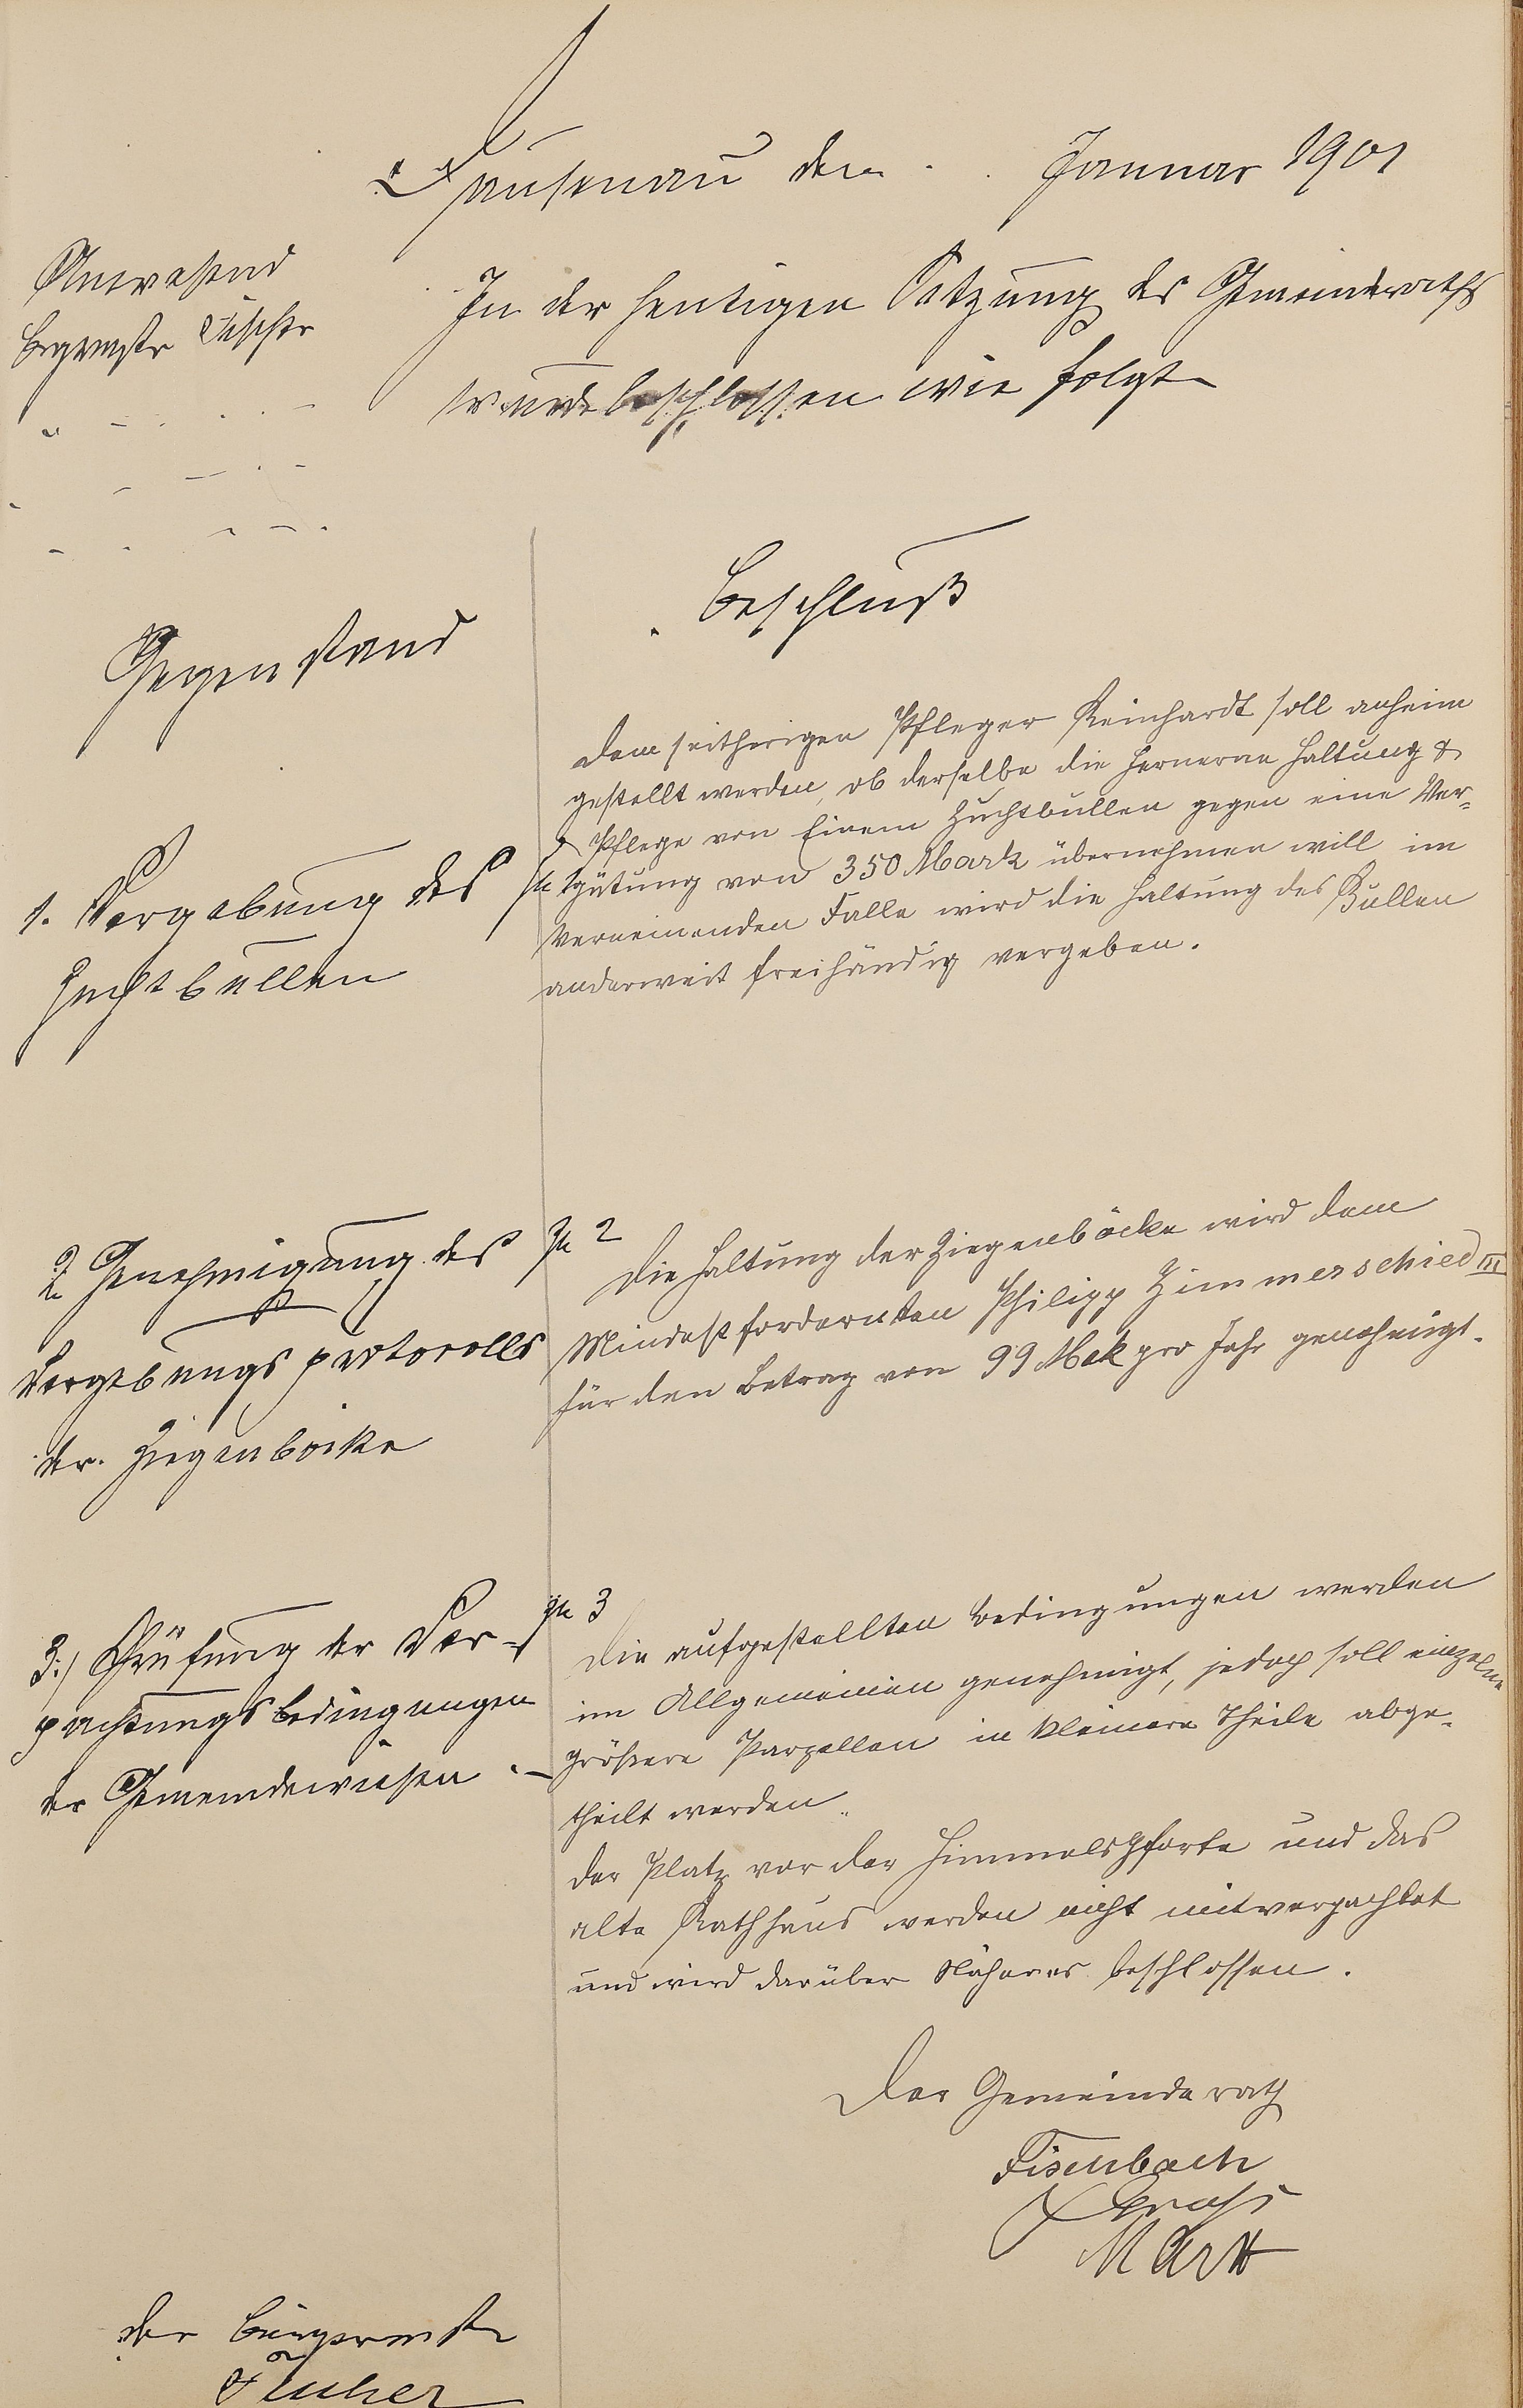 Dausenau den Januar 1901
Anwesend
Bürgermstr Fischer
In der heutigen Sitzung des Gemeinderaths
wurde beschlossen wie folgt
Gegenstand
Beschluß
1. Vergebung des
Zuchtbullen
Dem seitherigen Pfleger Reinhardt soll anheim
gestellt werden, ob derselbe die fernere Haltung &
Pflege von Einem Zuchtbullen gegen eine Ver-
gütung von 350 Mark übernehmen will im
verneinenden Falle wird die Haltung des Bullen
anderweit freihändig vergeben.
2 Genehmigung des
Vergebungsprotocolls
der Ziegenböcke
Zu 2
Die Haltung der Ziegenböcke wird dem
Mindestfordernden Philipp Zimmerschied III
für den Betrag von 99 Mak pro Jahr genehmigt.
3.) Prüfung der Ver-
pachtungsbedingungen
der Gemeindewiesen
Zu 3
Die aufgestellten Bedingungen werden
im Allgemeinen genehmigt, jedoch soll einzelne
größere Parzellen in kleinere Theile abge-
theilt werden.
Der Platz vor der Himmelspforte und das
alte Rathhaus werden nicht mitverpachtet
und wird darüber Näheres beschlossen.
Der Gemeinderath
Fischbach
Der Bürgermstr